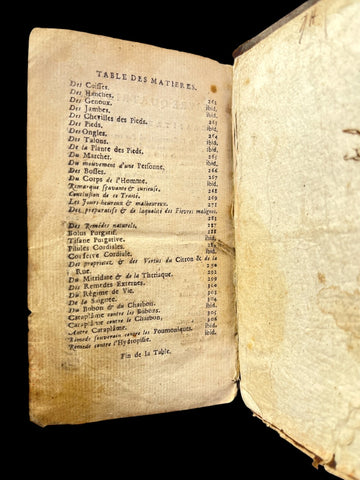 TABLE DES MATIERES.
Des Cuisses. 262
Des Hanches. ibid.
Des Genoux. ibid.
Des Jambes. ibid.
Des Chevilles des Pieds. ibid.
Des Pieds. ibid.
Des Ongles. 264
Des Talons. ibid.
De la Plante des Pieds. ibid.
Du Marcher. 265
Du mouvement d'une Personne. ibid.
Des Bosses. 266
Du Corps de l'Homme. 267
Remarque sçavante & curieuse. ibid.
Conclusion de ce Traité. 268
Les Jours heureux & malheureux. 269
Des préparatifs & de la qualité des Fievres malignes. 271
Des Remédes naturels, 287
Bolus Purgatif. 288
Tisane Purgative. ibid.
Pilules Cordiales.
Conserve Cordiale. ibid.
Des proprietez, & des Vertus du Citron & de la
Rue. 291
Du Mitridate & de la Thériaque. 292
Des Remédes Externes. 295
Du Régime de Vie. 301
De la Saignée. 302
Du Bubon & du Charbon. 303
Cataplâme contre les Bubons. 305
Cataplâme contre le Charbon, 306
Autre Cataplâme. ibid.
Reméde souverain contre les Poumoniques. ibid.
Reméde contre l'Hydropisie. ibid.
Fin de la Table.